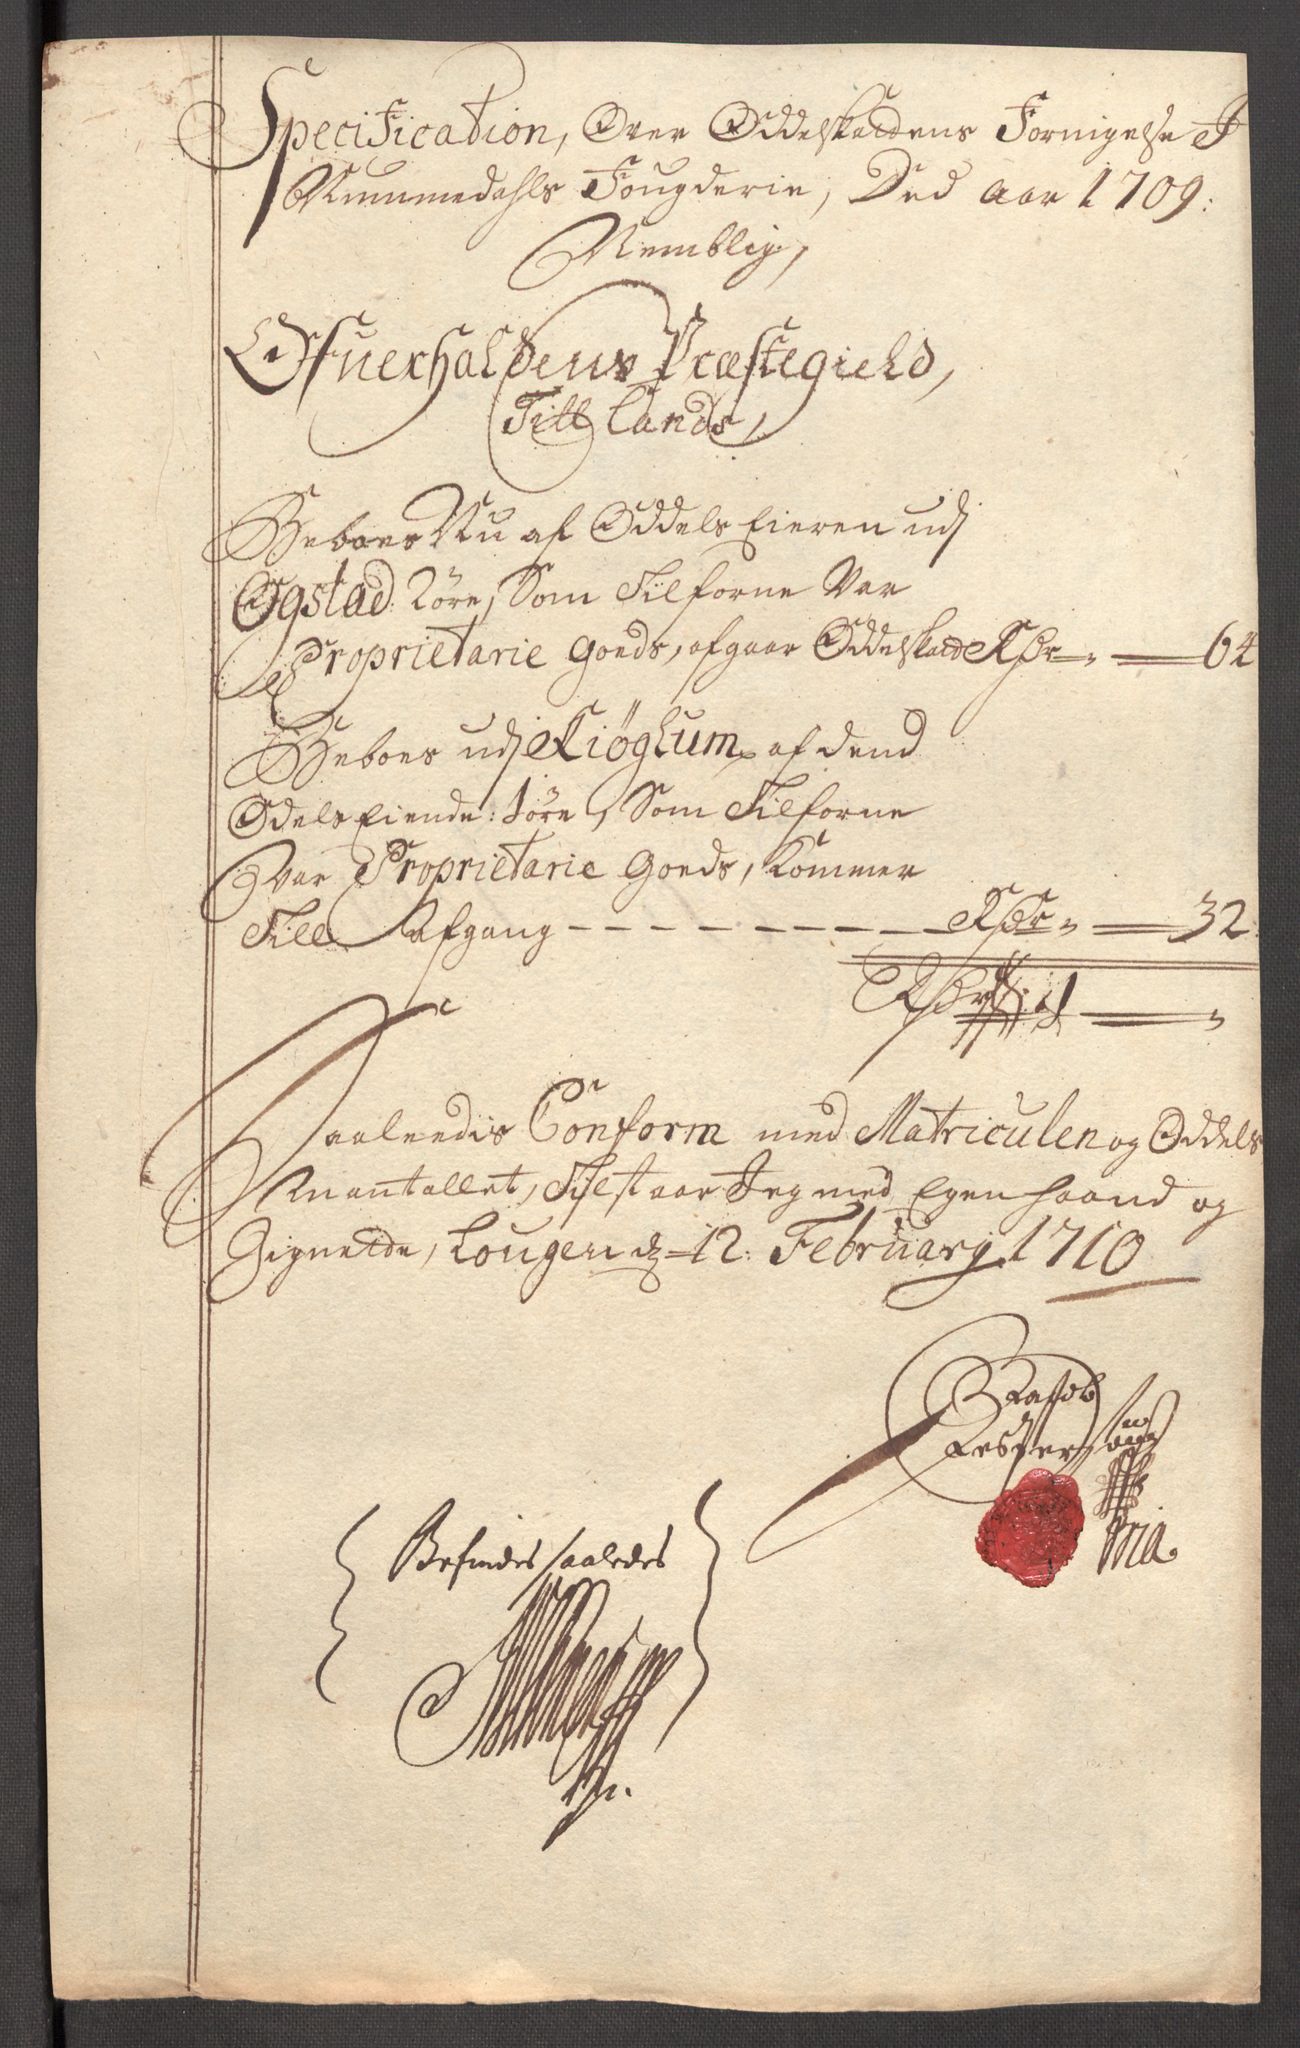 Specification, Over Oddelskattens Forrigelse I
Nummedahls Fougderie, Ded Aar 1709:
Nemblig,
Ofuerhaldens Præstegield,
Till Lands,
Beboes Nu af Oddels Eieren udj
Øgstad: 2 öre, Som Tilforne Var
Proprietarie Goeds, afgaar Oddelskatt Rdr " — 64
Beboes udj Kiöglum af dend
Odels Eiende: 1 öre, Som Tilforne
Var Proprietarie Goeds, Kommer
Till Afgang — Rdr " — 32.
Rdr 1 — "
Saaleedis Conform med Matriculen og Oddels
Mantallet, Tilstaar Jeg med Egen haand og
Signette, Lougen d 12: February 1710
Befindes saaledes